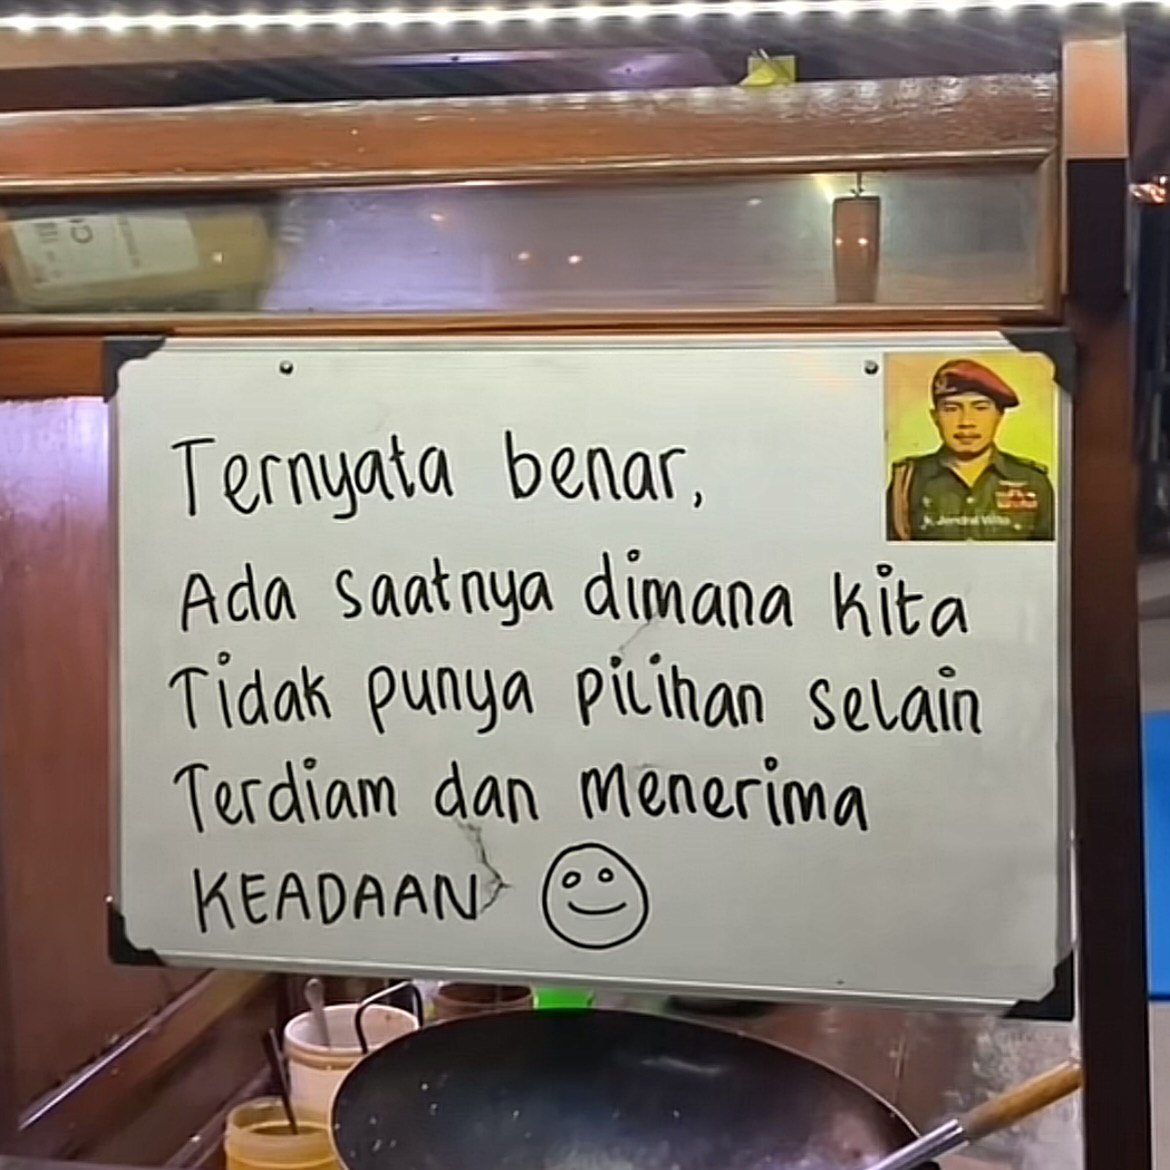 Ternyata benar,
Ada saatnya dimana kita
Tidak punya pilihan selain
Terdiam dan menerima
KEADAAN